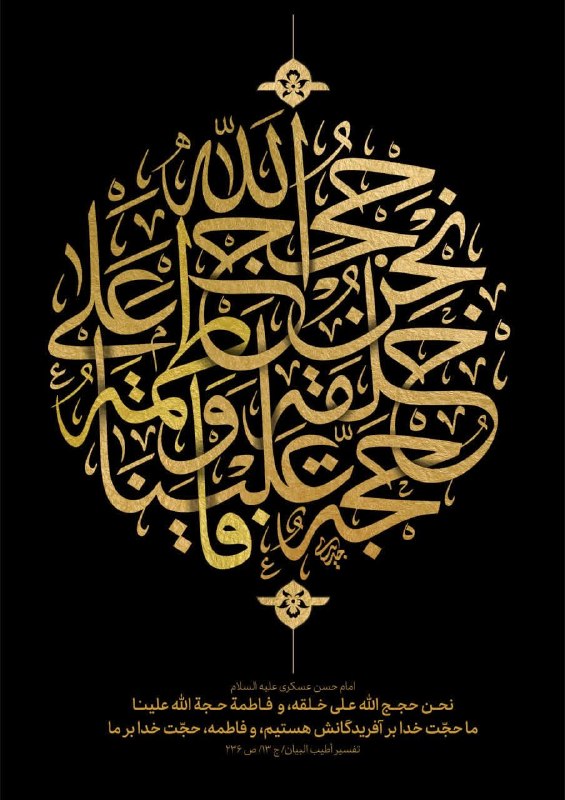 نحن حجج الله على
خلقه وفاطمة
حجة الله علينا
امام حسن عسکری علیه السلام
نحن حجج الله علی خلقه، و فاطمة حجة الله علینا
ما حجّت خدا بر آفریدگانش هستیم، و فاطمه، حجّت خدا بر ما
تفسیر أطیب البیان/ ج ۱۳/ ص ۲۳۶